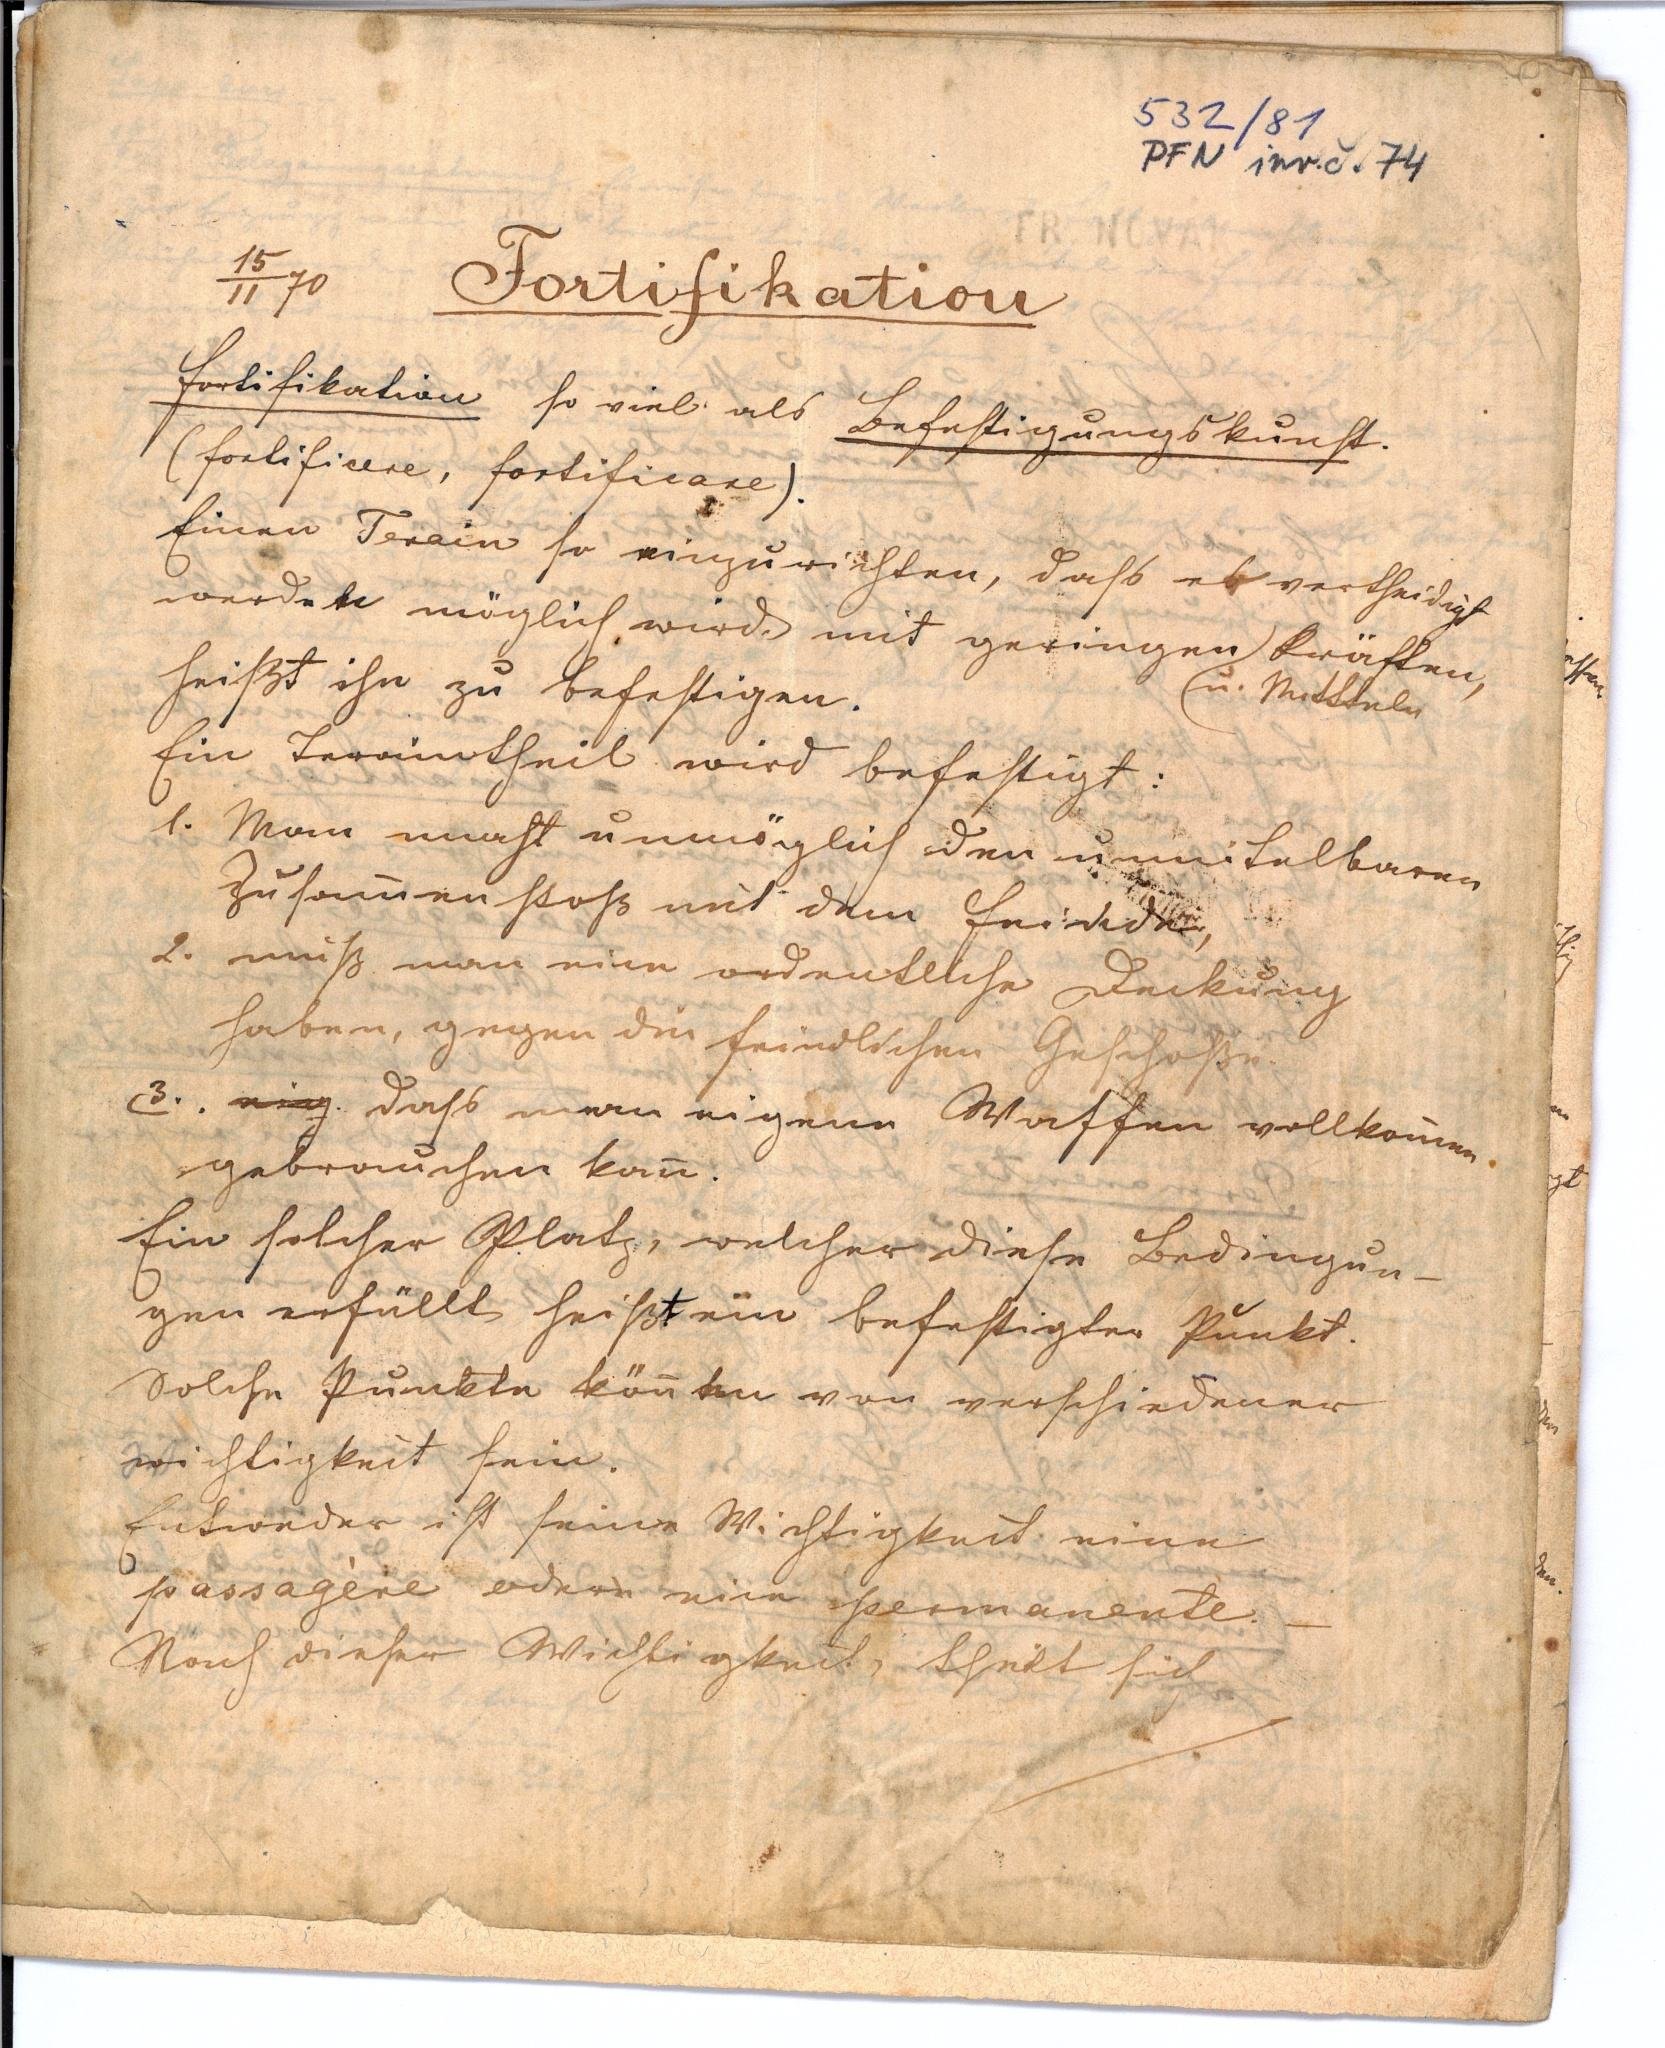 532/81
PFN inv.č. 74
15/11 70
Fortifikation
Fortifikation so viel als Befestigungskunst.
(fortificere, fortificare).
Einen Terain so einzurichten, dass es vertheidigt
werden möglich wird mit geringen Kräften,
u. Mitteln
heißt ihn zu befestigen.
Ein Teraintheil wird befestigt:
1. Man macht unmöglich den unmitelbaren
Zusam̄enstoß mit dem Feinde,
2. muß man eine ordentliche Deckung
haben, gegen die feindlichen Geschoße.
3. eig. dass man eigene Waffen vollkom̄en
gebrauchen kan̄.
Ein solcher Platz, welcher diese Bedingun-
gen erfüllt heißt ein befestigter Punkt.
Solche Punkte kön̄ten von verschiedener
wichtigkeit sein.
Entweder ist seine Wichtigkeit eine
passagère oder eine permanente. —
Nach dieser Wichtigkeit, theilt sich